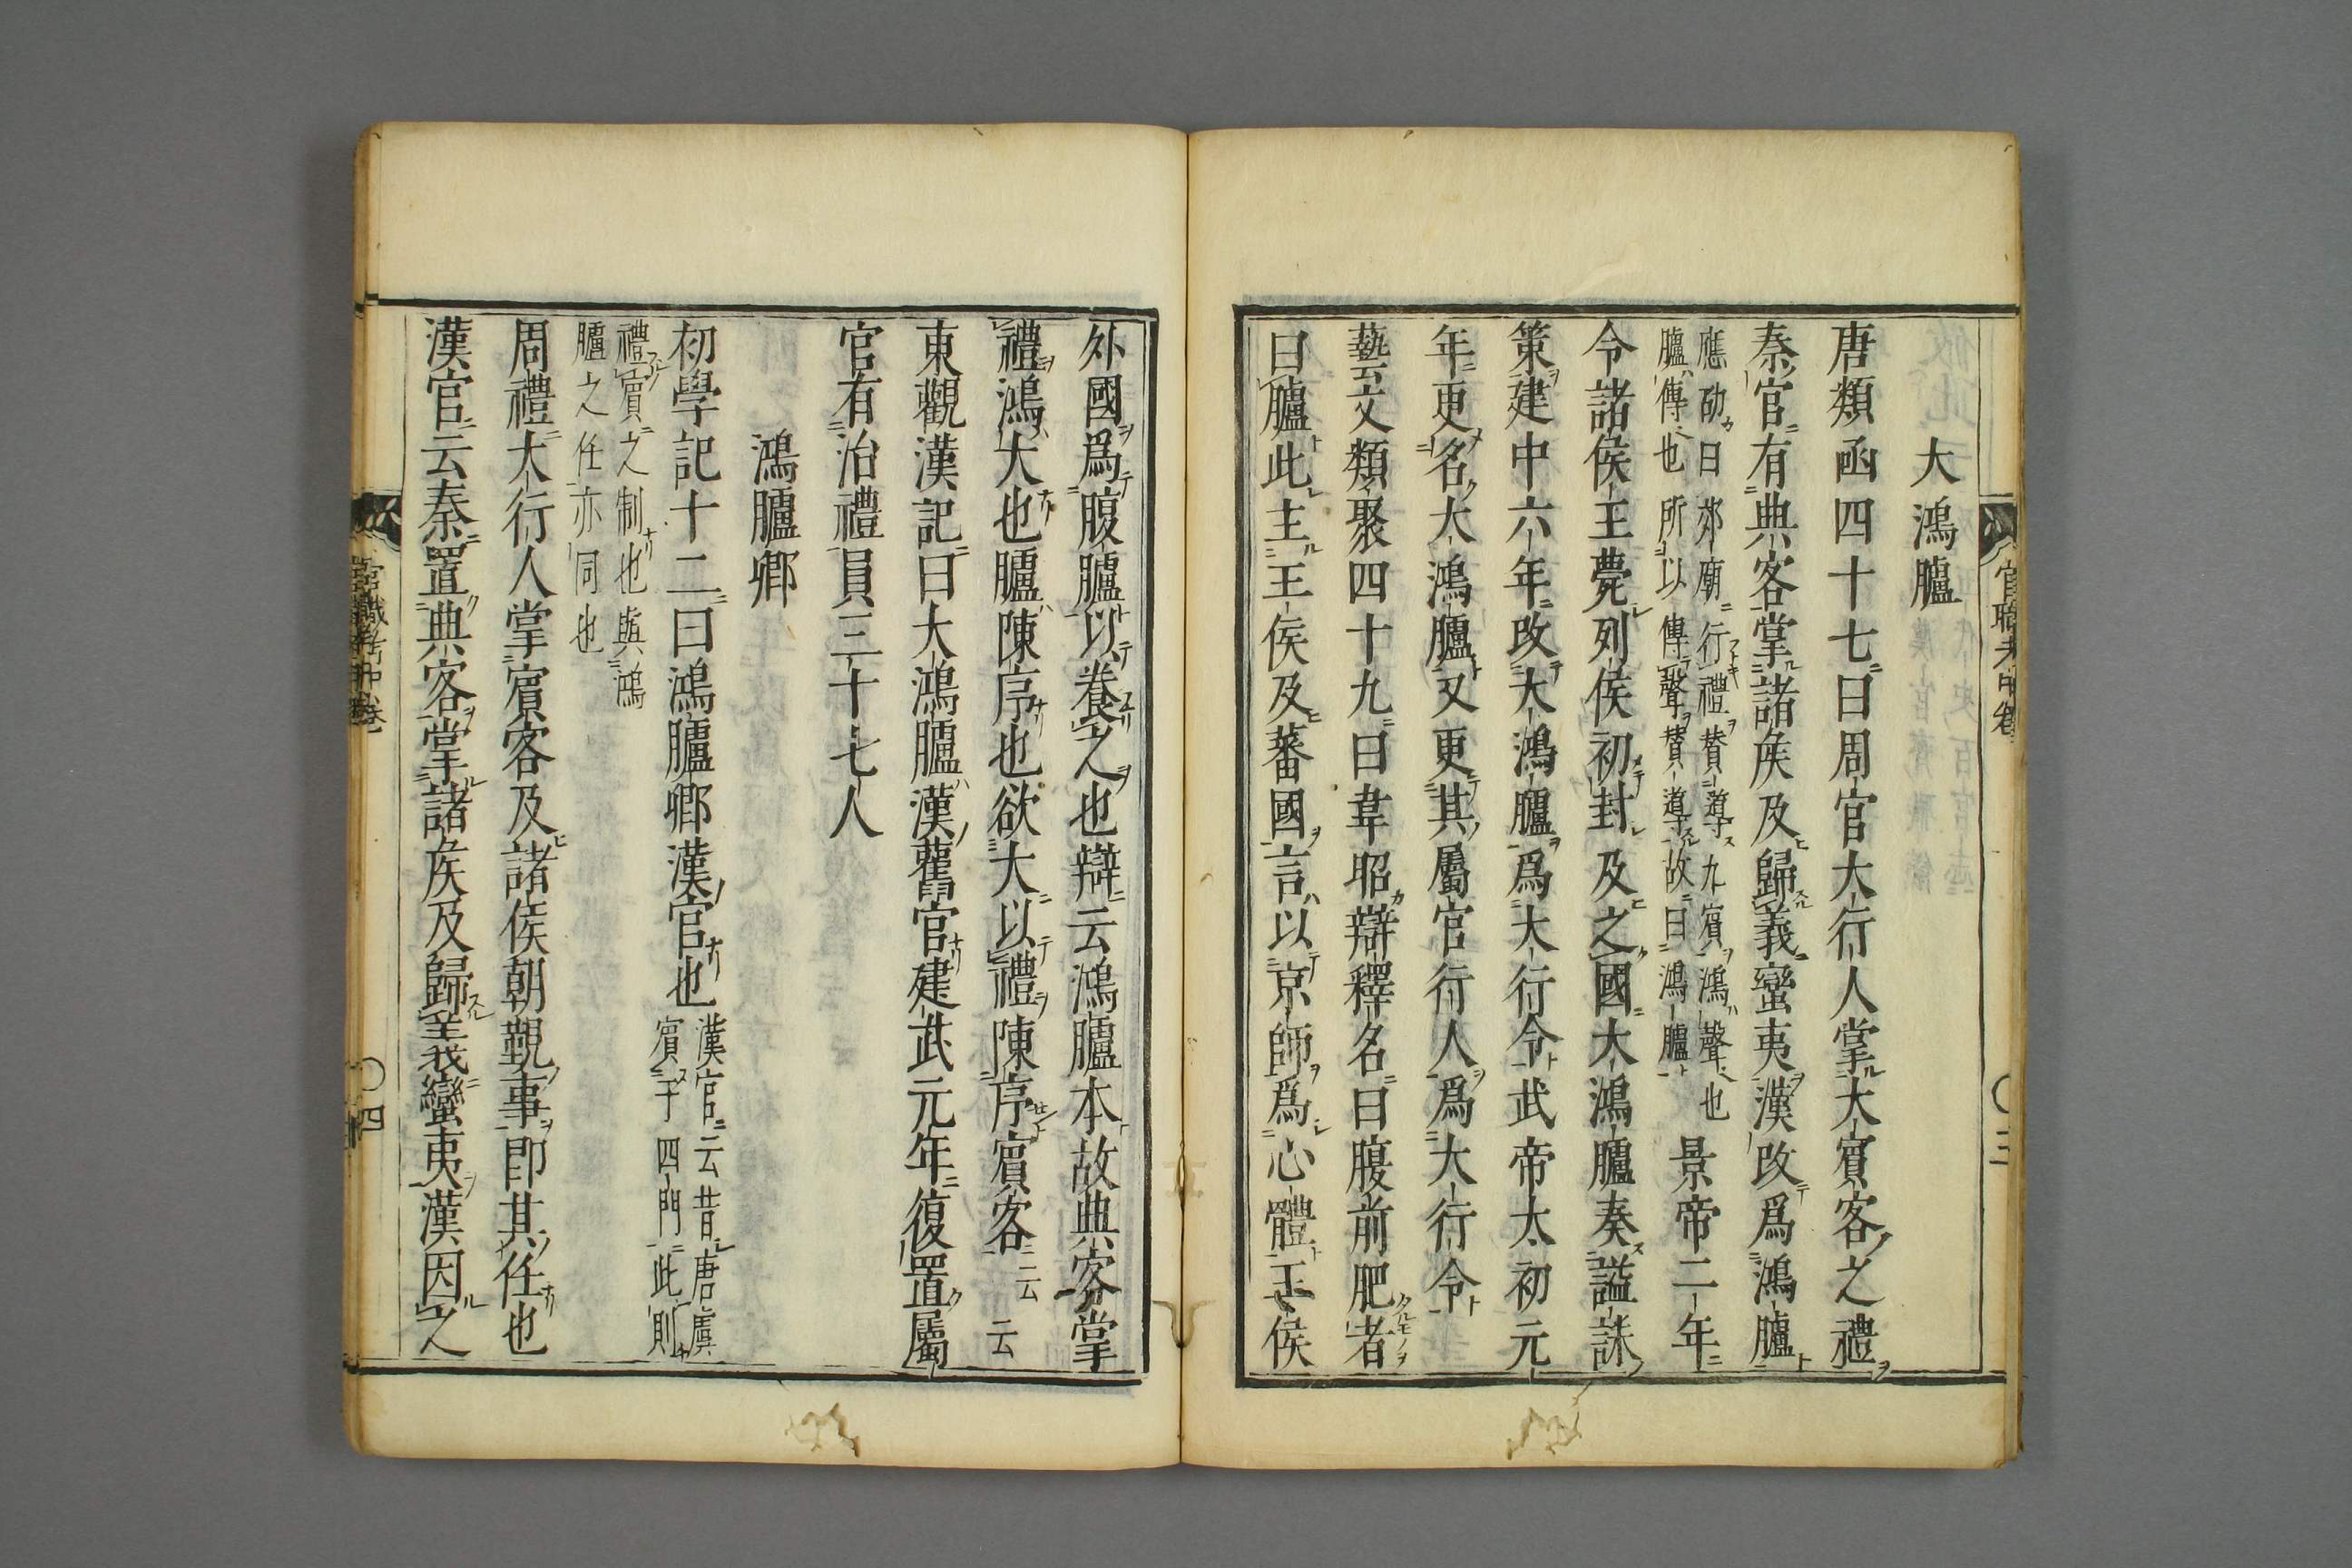 大鴻臚
唐類函四十七曰周官大行人掌大賓客之禮
秦官有典客掌諸侯及歸義蠻夷漢改爲鴻臚
應劭曰郊廟行禮賛導九賓鴻聲也
臚傳也所以傳聲賛導故曰鴻臚
景帝二年
令諸侯王薨列侯初封及之國大鴻臚奏諡誄
策建中六年改大鴻臚爲大行令武帝太初元
年更名大鴻臚又更其屬官行人爲大行令
藝文類聚四十九曰韋昭辯釋名曰腹前肥者
曰臚此主王侯及蕃國言以京師爲心體王侯
官職考中卷
〇三
外國爲腹臚以養之也辯云鴻臚本故典客掌
禮鴻大也臚陳序也欲大以禮陳序賓客云云
東觀漢記曰大鴻臚漢舊官建武元年復置屬
官有治禮員三十七人
鴻臚卿
初學記十二曰鴻臚卿漢官也
漢官云昔唐虞
賓于四門此則
禮賓之制也與鴻
臚之任亦同也
周禮大行人掌賓客及諸侯朝覲事即其任也
漢官云秦置典客掌諸侯及歸義蠻夷漢因之
官職考中卷
〇四